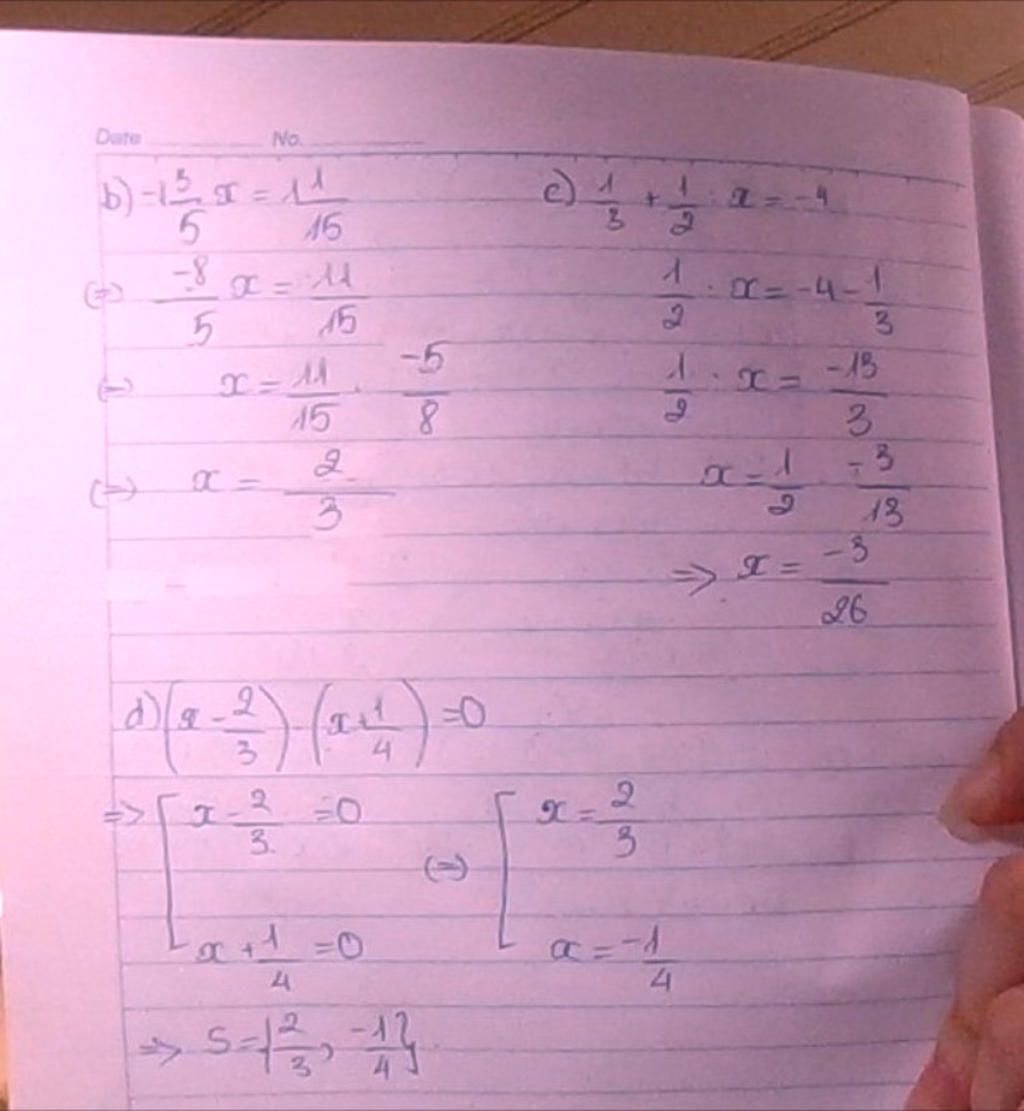 Date No.
b) -1 3/5 x = 1 1/15
(=) -8/5 x = 11/15
(=) x = 11/15 . -5/8
(=) x = 2/3
c) 1/3 + 1/2 . x = -4
1/2 . x = -4 - 1/3
1/2 . x = -13/3
x = 1/2 . -3/13
=> x = -3/26
d) (x - 2/3) . (x + 1/4) = 0
=> [ x - 2/3 = 0 (=) [ x = 2/3
x + 1/4 = 0 x = -1/4
=> S = {2/3, -1/4}